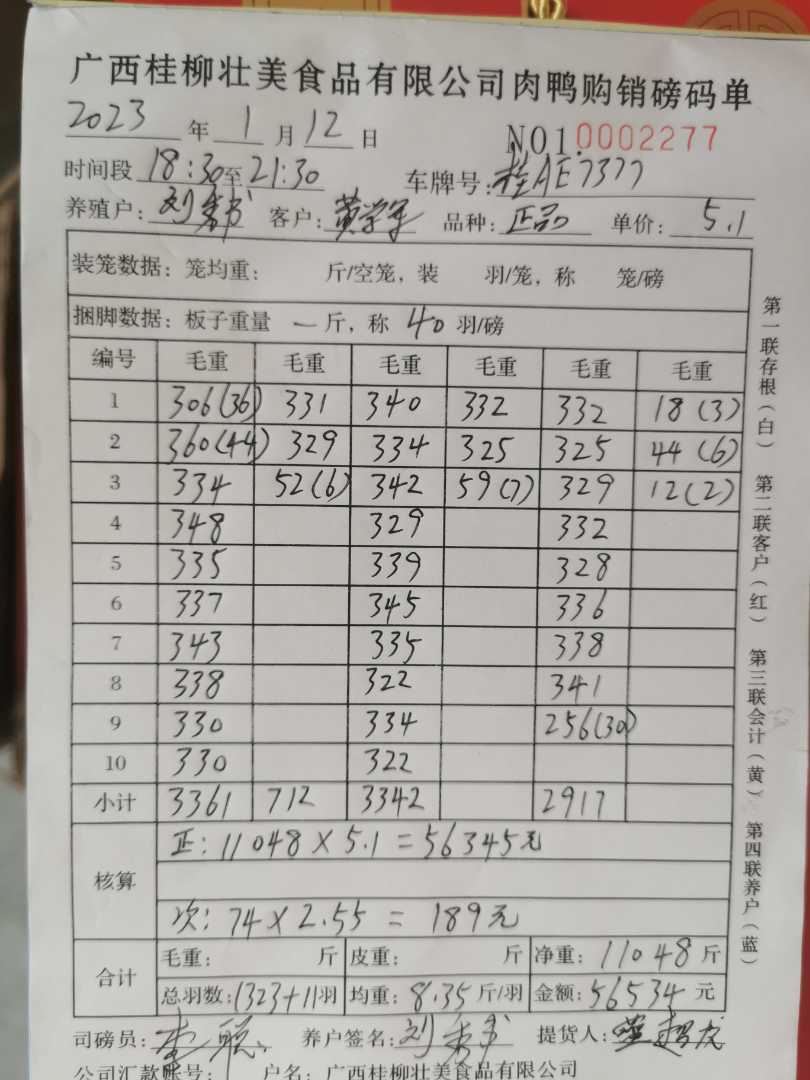 广西桂柳壮美食品有限公司肉鸭购销磅码单
2023 年 1 月 12 日 NO1.0002277
时间段 18:30 至 21:30 车牌号: 桂AE7377
养殖户: 刘 客户: 黄 品种: 正品 单价: 5.1
装笼数据: 笼均重: 斤/空笼, 装 羽/笼, 称 笼/磅
捆脚数据: 板子重量 一 斤, 称 40 羽/磅
编号 毛重 毛重 毛重 毛重 毛重 毛重
1 306(36) 331 340 332 332 18(3)
2 360(44) 329 334 325 325 44(6)
3 334 52(6) 342 59(7) 329 12(2)
4 348 329 332
5 335 339 328
6 337 345 336
7 343 335 338
8 338 322 341
9 330 334 256(30)
10 330 322
小计 3361 712 3342 2917
核算
正: 11048×5.1=56345元
次: 74×2.55=189元
合计
毛重: 斤 皮重: 斤 净重: 11048 斤
总羽数: 1323+11 羽 均重: 8.35 斤/羽 金额: 56534 元
司磅员: 养户签名: 刘 提货人:
公司汇款账号: 户名: 广西桂柳壮美食品有限公司
第一联存根(白) 第二联客户(红) 第三联会计(黄) 第四联养户(蓝)